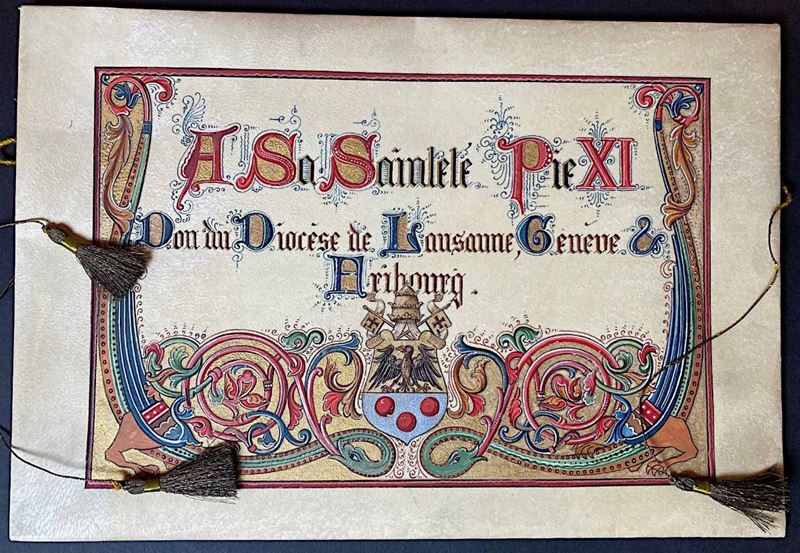 A Sa Sainteté Pie XI
Don du Diocèse de Lausanne, Genève &
Fribourg.